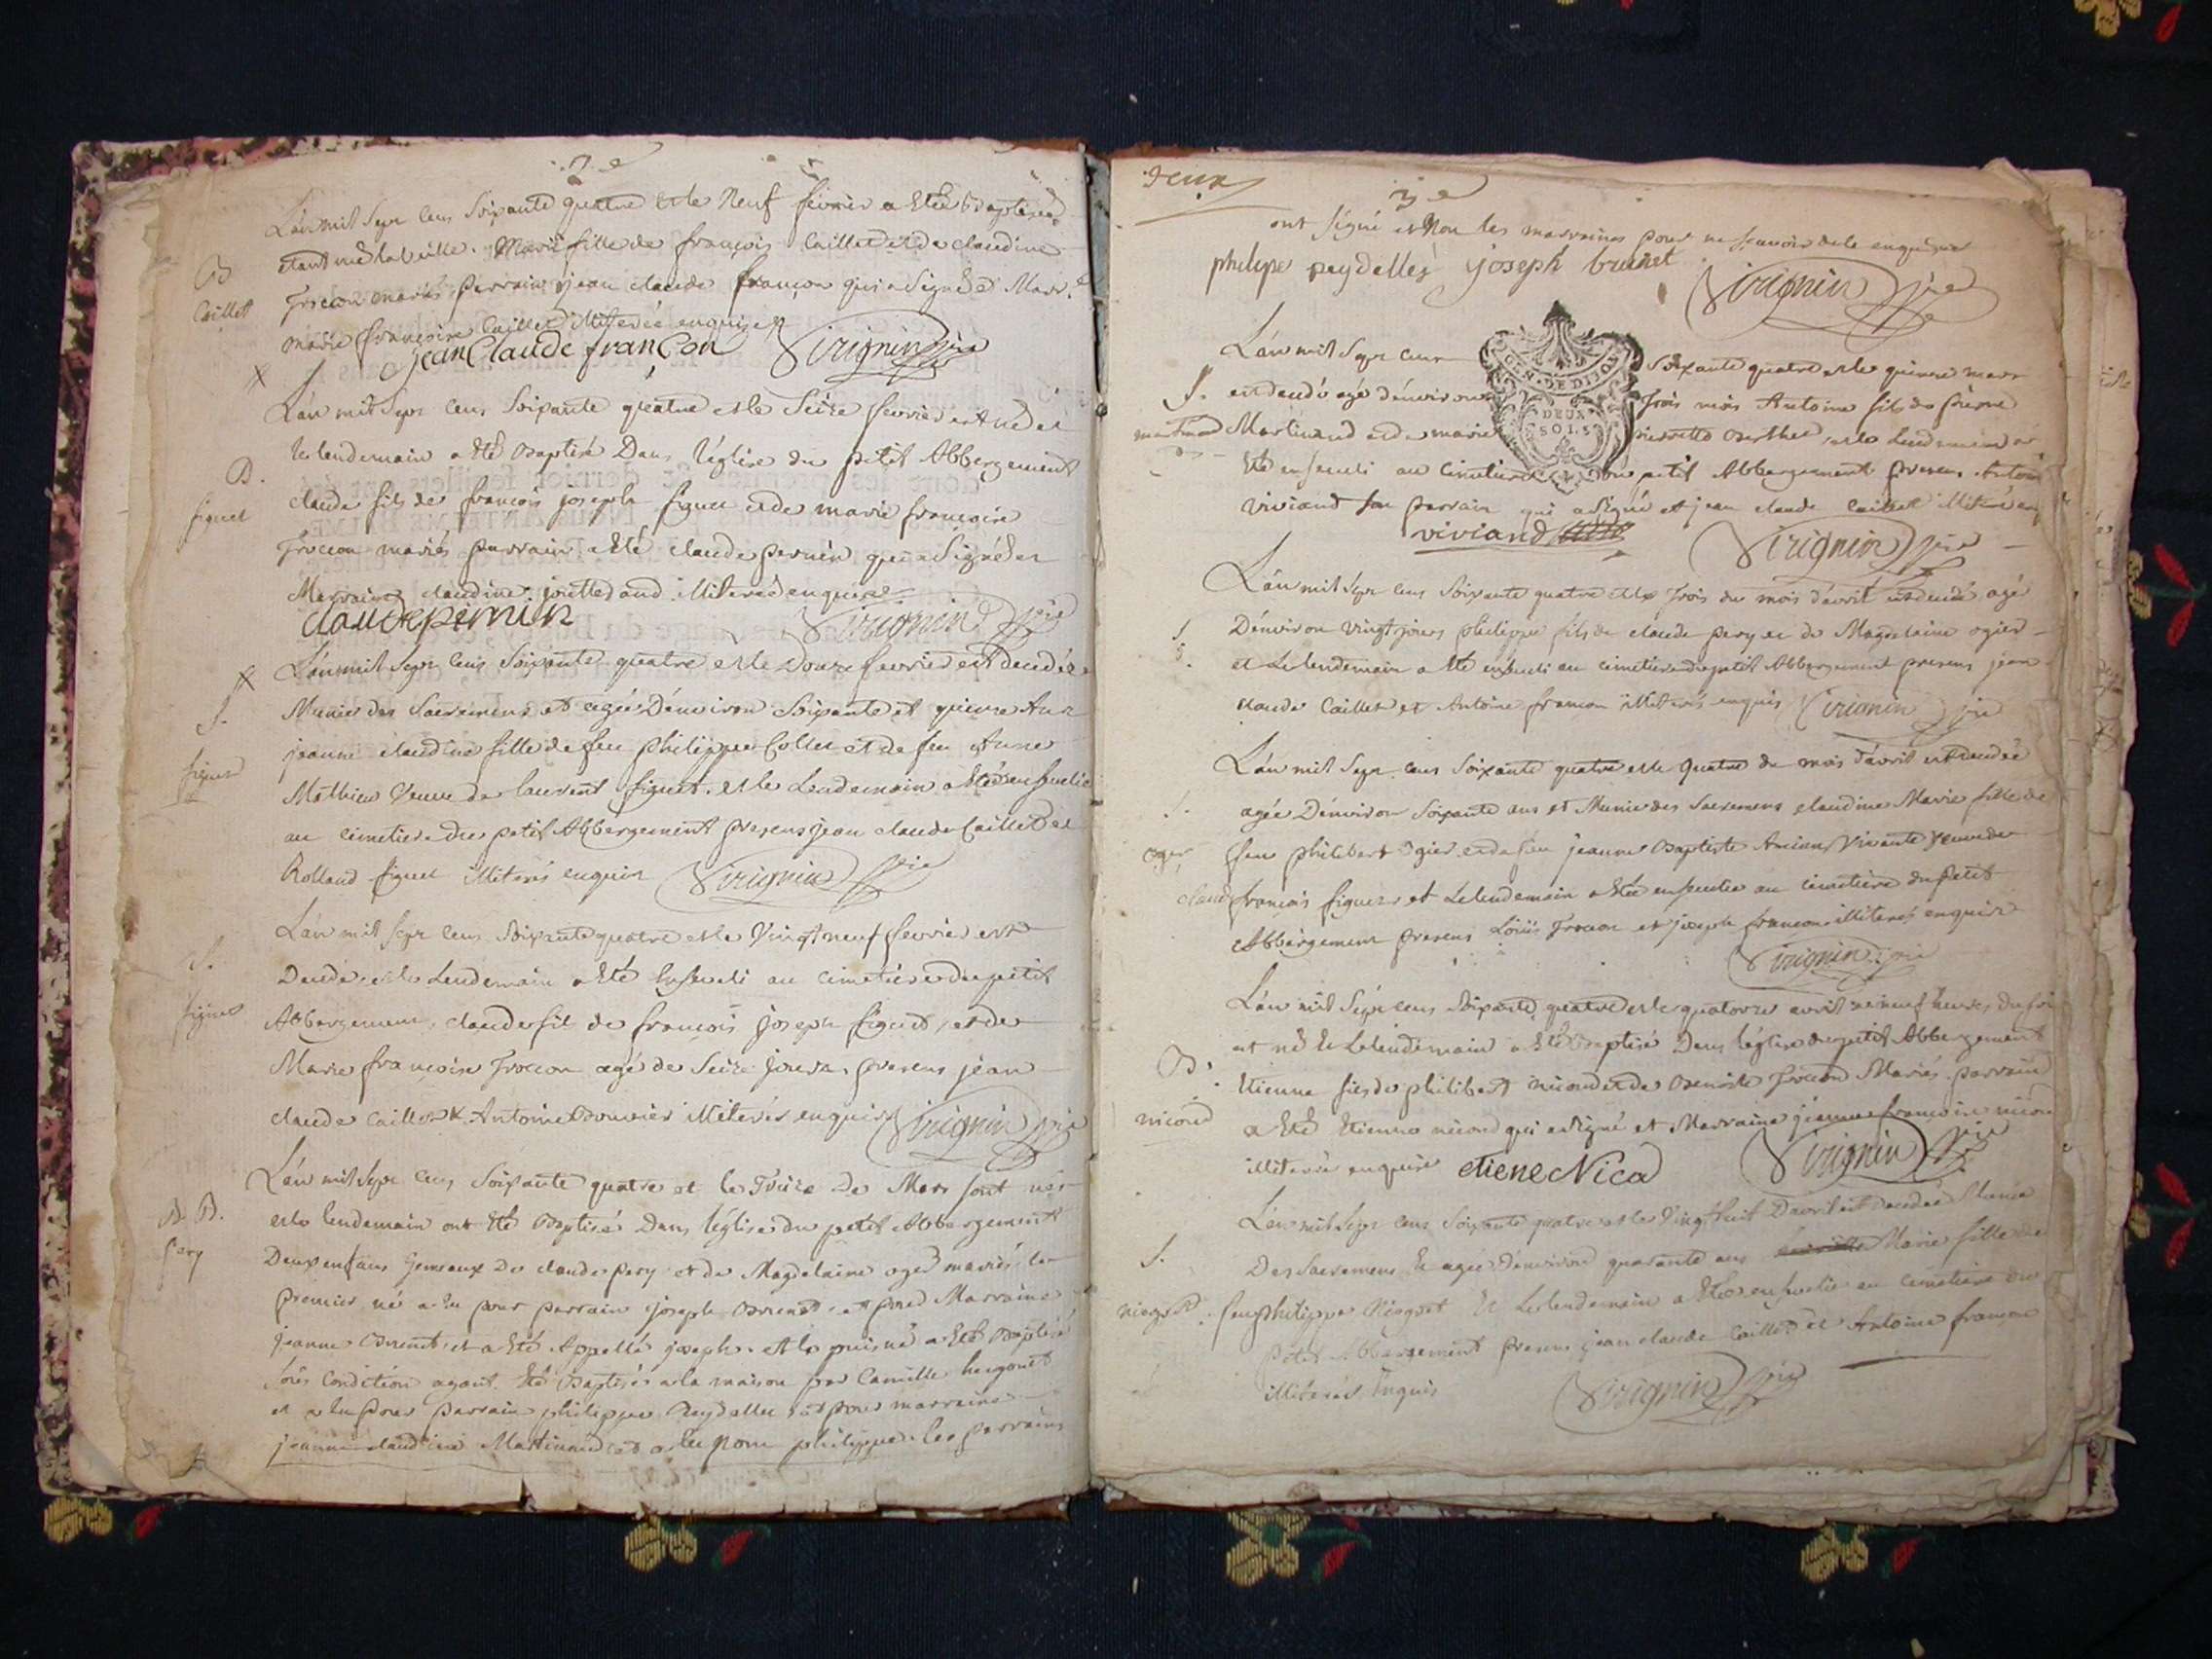 2e
L'an mil Sept Cens Soixante quatre et le Neuf fevrier a Eté Baptisée
étant née la veille. Marie fille de françois Caillet et de claudine
B
Caillet
Trocon mariés parrain jean claude françon qui a signé et Marr.e
marie françoise Caillet illiterée enquise
jean Claude franÇon Virignin
L'an mil Sept Cens Soixante quatre et le Seize fevrier est né et
le lendemain a Eté Baptisé Dans l'église du petit Abbergement
B.
figuet
claude fils de françois joseph figuet et de marie françoise
Trocon mariés parrain a Eté claude pernin qui a Signé et
Marraine claudine illiterée enquise
claude pernin Virignin
L'an mil Sept Cens Soixante quatre et le Douze fevrier est decedée
S.
figuet
Munie des Sacremens et agée D'environ Soixante et quinze Ans
jeanne claudine fille de feu philippe Collet et de feu Anne
Mathieu Veuve de laurent figuet. et le Lendemain a Eté ensevelie
au cimetiere du petit Abbergement presens jean claude Caillet et
Rolland figuet illiterés enquis Virignin
L'an mil Sept Cens Soixante quatre et le Vingt neuf fevrier est
S.
figuet
Decedé et le Lendemain a Eté Enseveli au cimetiere du petit
Abbergement, claude fils de françois joseph figuet, et de
Marie françoise Trocon agé de Seize jours. presens jean
claude Caillet & Antoine Bouvier illiterés enquis Virignin
L'an mil Sept Cens Soixante quatre et le Treize De Mars sont nés
B. B.
pery
et le lendemain ont Eté Baptisés Dans l'église du petit Abbergement
Deux enfans Gemeaux De claude pery et de Magdelaine oger mariés, le
premier né a Eu pour parrain joseph Brunet et pour Marraine
jeanne Brunet et a Eté Appellé joseph. et le puisné a Eté Baptisé
sous Condition ayant Eté Baptisé a la maison par Camille
et a Eu pour parrain philippe Reydellet et pour marraine
jeanne claudine Martinand et a Eu Nom philippe. les parrains
deux
3e
ont signé et Non les marraines pour ne sçavoir de le enquises
philipe peydellet joseph brunet
Virignin
L'an mil Sept Cens Soixante quatre et le quinze mars
GEN. DE DIJON
DEUX
SOLS
S.
martinand
est decedé agé d'environ Trois mois Antoine fils de
Martinand et de marie pierrette Berthet, et le Lendemain a
Eté enseveli au Cimetiere Du petit Abbergement presens Antoine
Viviand son parrain qui a Signé et jean claude Caillet illiteré enq
viviand Virignin
L'an mil Sept Cens Soixante quatre et le Trois du mois d'avril est decedé agé
S.
D'environ Vingt jours philippe fils de claude pery et de Magdelaine ogier
et Le lendemain a Eté enseveli au cimetiere du petit Abbergement presens jean
claude Caillet et Antoine françon illiterés enquis Virignin
L'an mil Sept Cens Soixante quatre et le quatre du mois d'avril est decedée
S.
oger
agée D'environ Soixante ans et Munie des Sacremens claudine Marie fille de
feu philibert Ogier et de feu jeanne Baptiste Vivante Veuve de
claude françois figuet et Le lendemain a Eté ensevelie au cimetiere du petit
Abbergement presens Loüis Trocon et joseph françon illiterés enquis
Virignin
L'an mil Sept Cens Soixante quatre et le quatorze avril neuf heures du soir
B.
nicod
est né Et Le lendemain a Eté Baptisé Dans l'église du petit Abbergement
Etienne fils de philibert nicod et de Benoite Trocon Mariés. parrain
a Eté Etienne nicod qui a signé et Marraine jeanne françoise nicod
illiterée enquise etiene Nicod Virignin
L'an mil Sept Cens Soixante quatre et le Vingt huit D'avril est decedée Munie
S.
niogret
Des Sacremens Et agée D'environ quarante ans Marie fille de
feu philippe Niogret Et Le lendemain a Eté ensevelie au cimetiere du
petit Abbergement presens jean claude Caillet et Antoine françon
illiterés Enquis Virignin